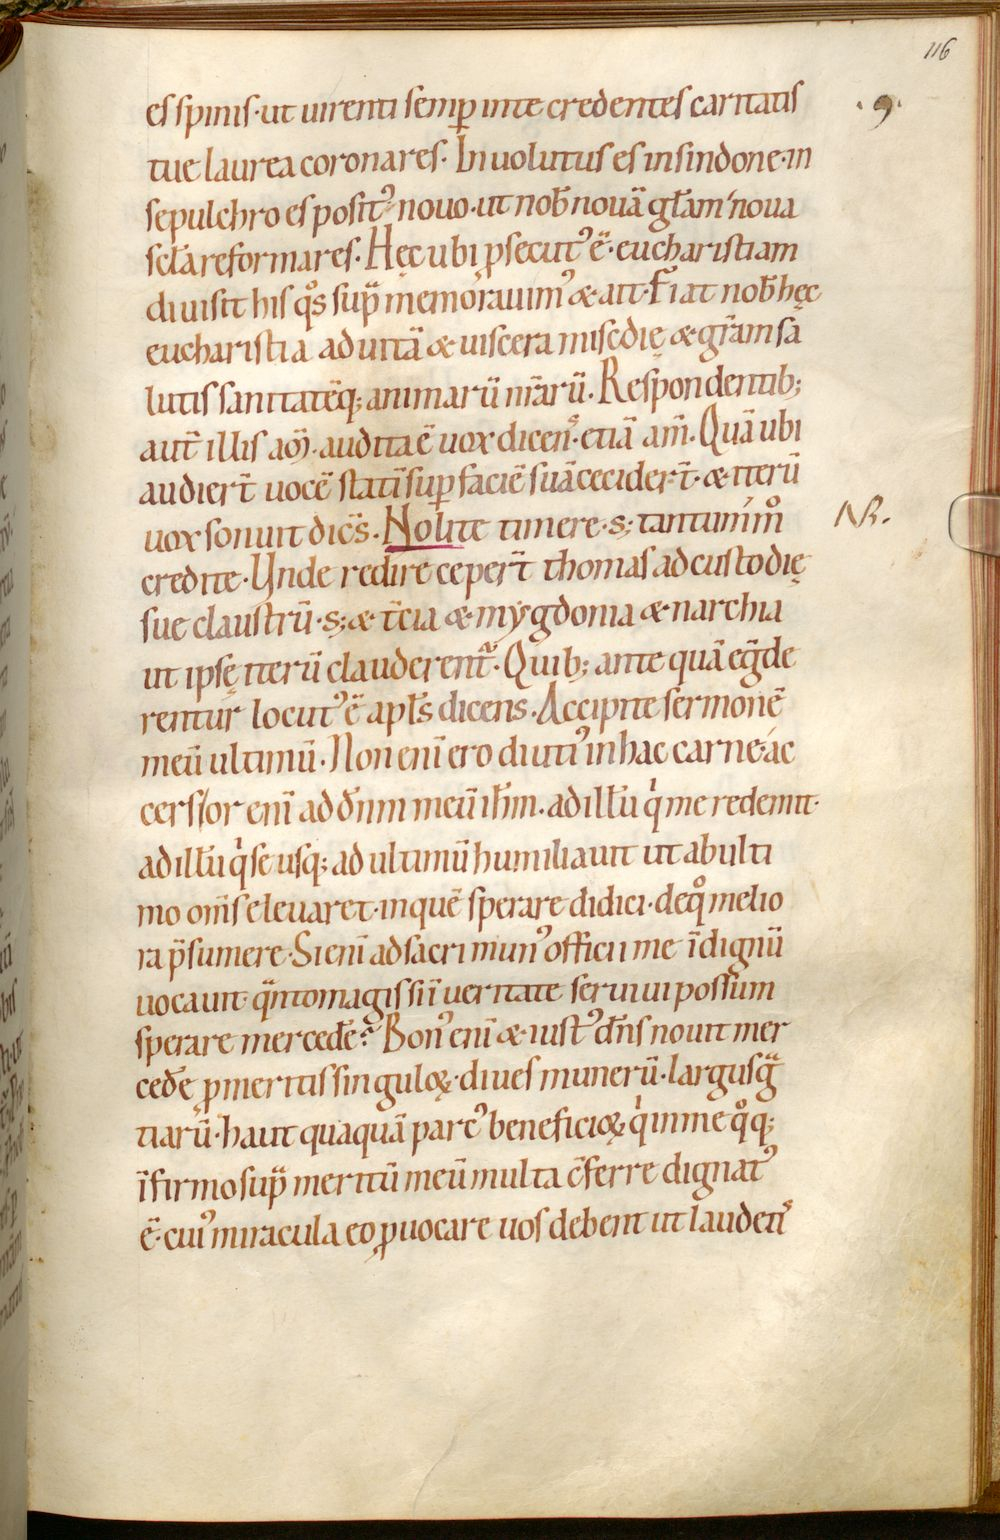 116
es spinis· ut uirenti semꝑ in te credentes caritatis
tue laurea coronares· Inuolutus es in sindone· in
sepulchro es positꝰ nouo· ut nob̄ nouā gr̄am· noua
sc̄la reformares· Hęc ubi ꝓsecutꝰ ē· eucharistiam
diuisit his qͦs sup̄ memorauimꝰ & ait· Fiat nob̄ hęc
eucharistia ad uitā & uiscera misc̄dię & gr̄am sa
lutis sanitatēq; animarū nr̄arū· Respondentib;
aut̄ illis am̄· audita ē uox dicens· etiā am̄· Quā ubi
audiert̄ uocē statī suꝑ faciē suā cecidert̄· & iterū
uox sonuit dic̄s· Nolite timere· s; tantūm̊m
NR.
credite· Unde redire cepert̄ thomas ad custodię
sue claustrū· s; & t̄cia & mẏgdonia & narchia
ut ipsę iterū clauderent᷑· Quib; ante quā eg̃de
rentur locutꝰ ē apl̄s dicens· Accipite sermonē
meū ultimū· Non enī ero diutiꝰ in hac carne· ac
cersior enī ad dn̄m meū ih̄m· ad illū qͥ me redemit·
ad illū qͥ se usq; ad ultimū humiliauit ut ab ulti
mo om̄s eleuaret· in quē sperare didici· de qͦ melio
ra p̄sumere· Si enī ad sacri munꝰ officii me īdignū
uocauit· qͣnto magis si ī ueritate seruiui possum
sperare mercedē? Bonꝰ enī & iustꝰ dn̄s nouit mer
cedē ꝓ meritis singuloꝝ· diues munerū· largus gͣ
tiarū· haut quaquā parcꝰ beneficioꝝ qͥ in me qͦq;
īfirmo sup̄ meritū meū multa c̄ferre dignatꝰ
ē· cuiꝰ miracula eo ꝓuocare uos debent ut laudetis